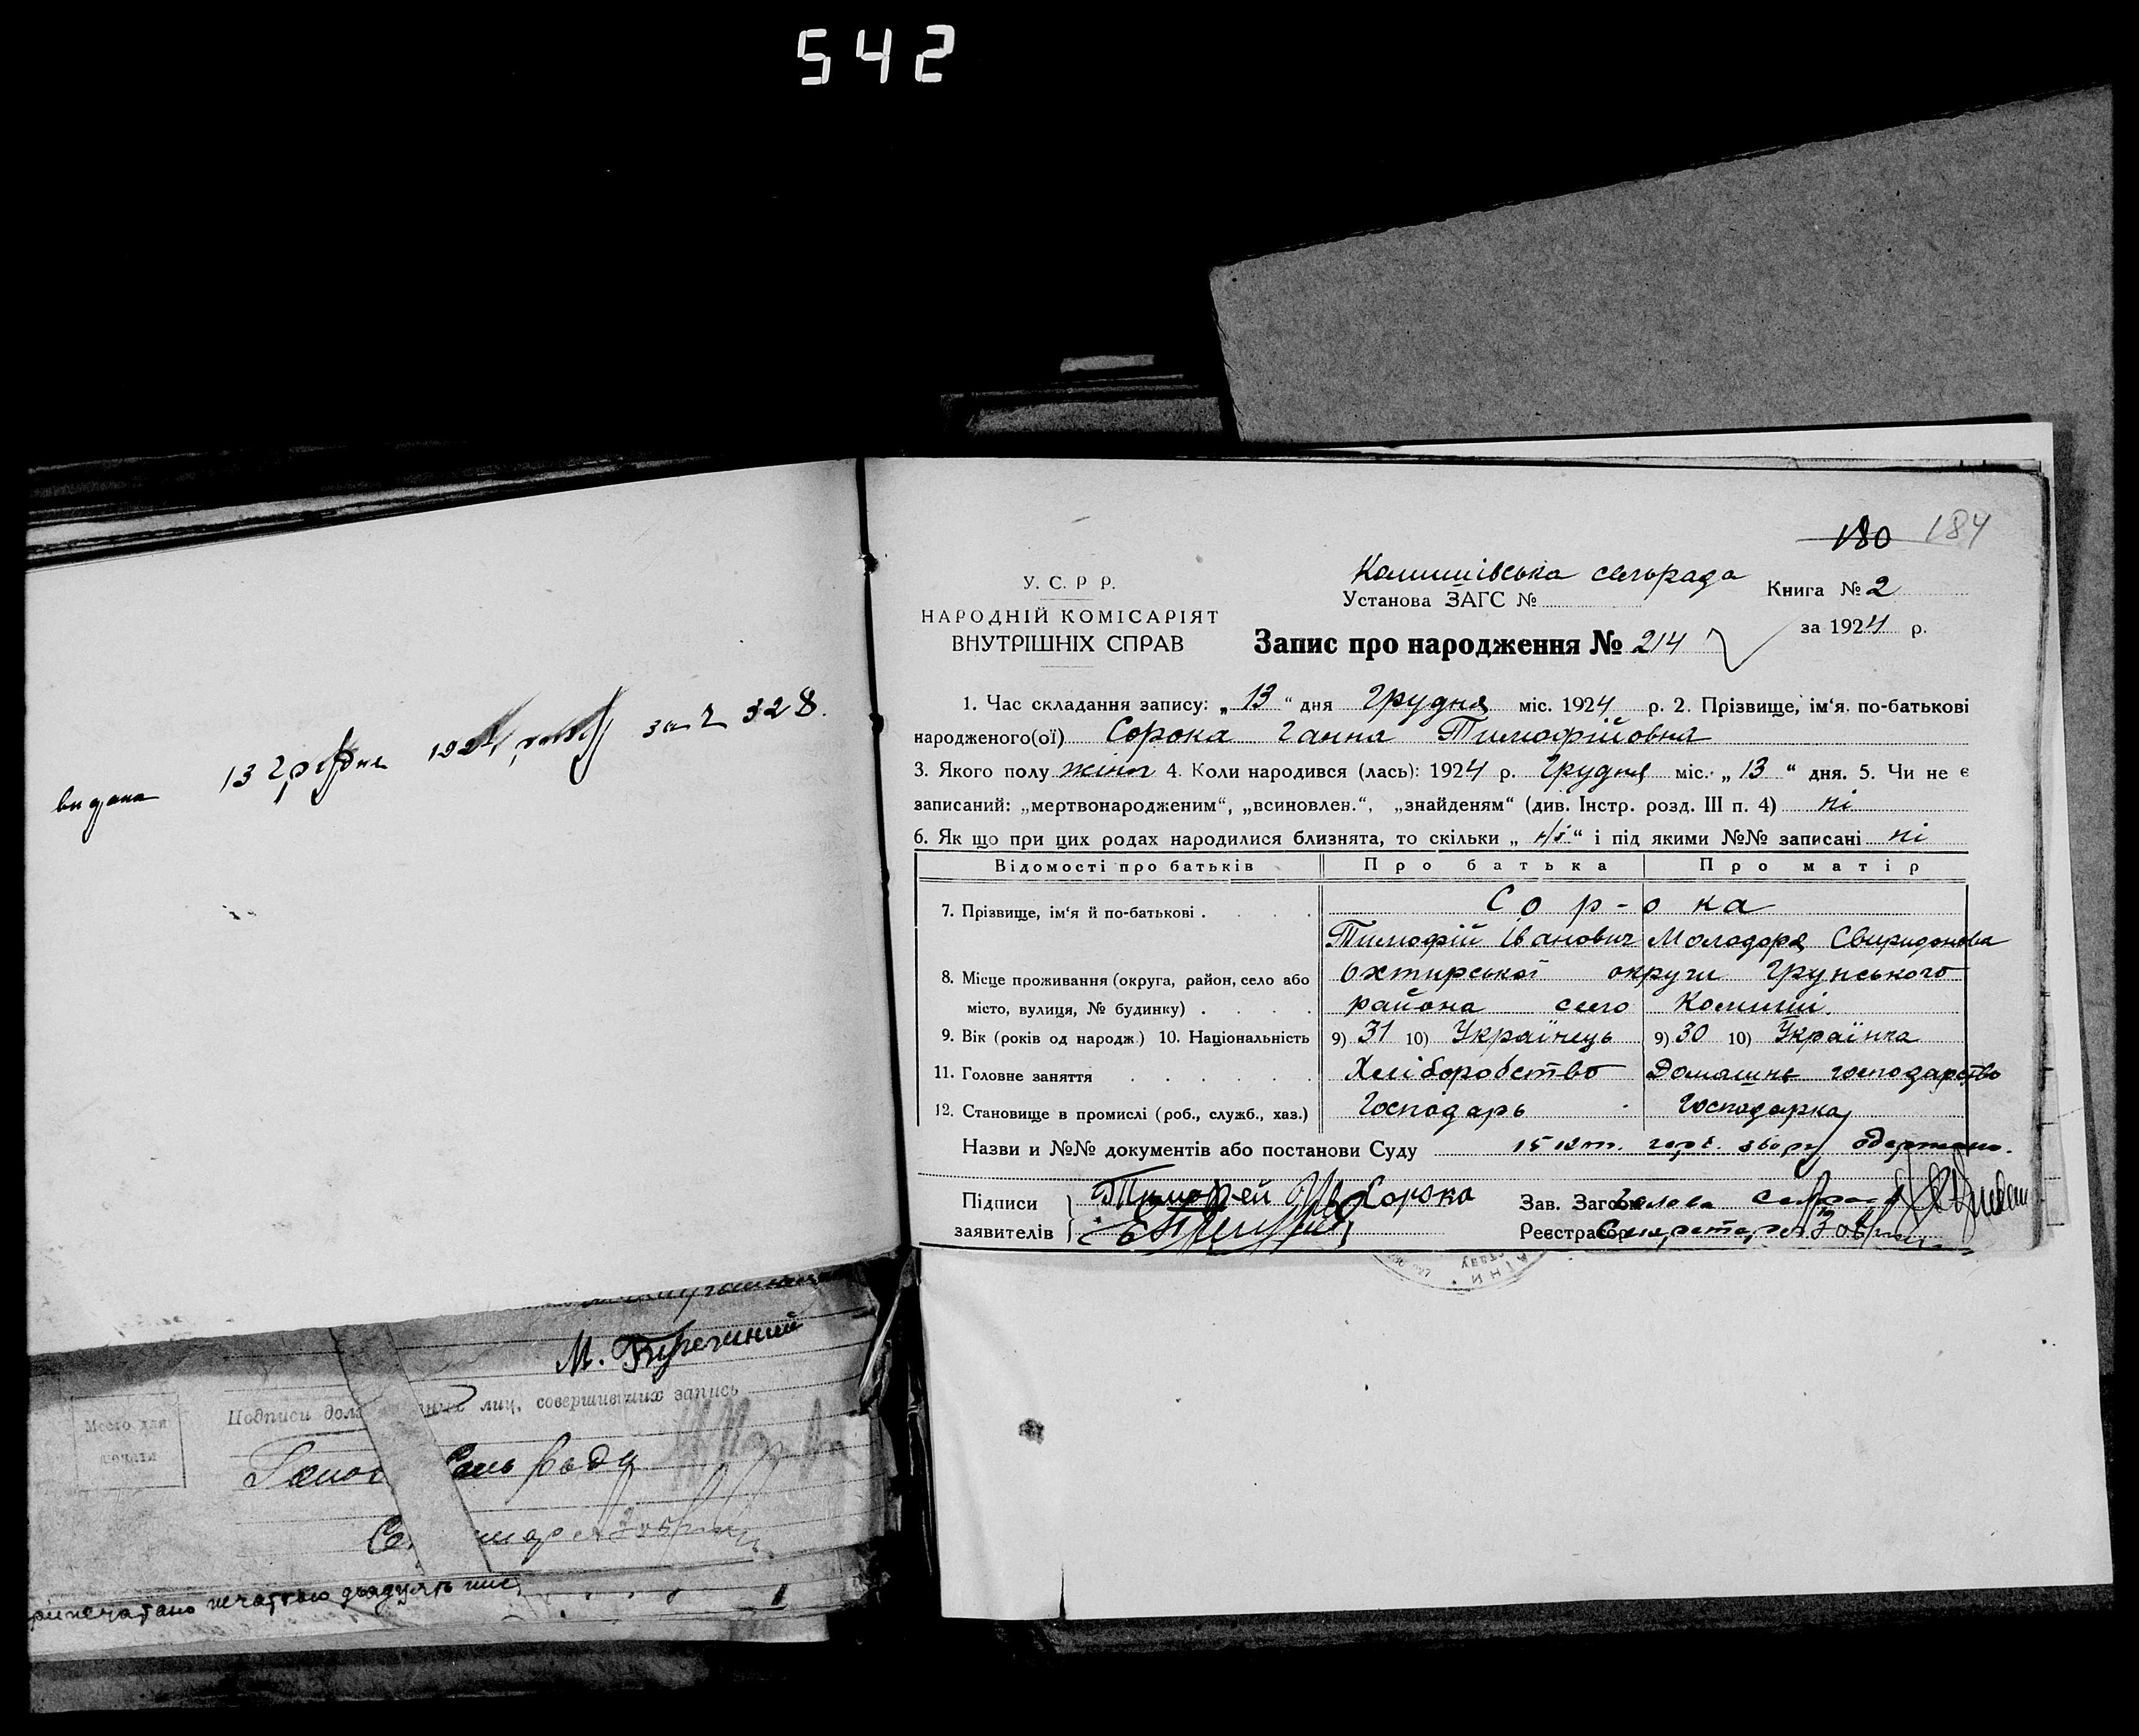 542
видана 13 Грудня 1924 року за № 328.
180 184
У. С. Р Р.
НАРОДНІЙ КОМІСАРІЯТ
ВНУТРІШНІХ СПРАВ
Комишівська сельрада
Установа ЗАГС №
Книга № 2
за 1924 р.
Запис про народження № 214
1. Час складання запису: „ 13 “ дня Грудня міс. 1924 р. 2. Прізвище, ім'я, по-батькові
народженого(ої) Сорока Ганна Тимофійовна
3. Якого полу жіноч 4. Коли народився (лась): 1924 р. Грудня міс. „ 13 “ дня. 5. Чи не є
записаний: „мертвонародженим“, „всиновлен.“, „знайденям“ (див. Інстр. розд. III п. 4) ні
6. Як що при цих родах народилися близнята, то скільки „ “ і під якими №№ записані ні
Відомості про батьків Про батька Про матір
7. Прізвище, ім'я й по-батькові . . . . Сор-ока
Тимофій Іванович Молодора Свиридонова
8. Місце проживання (округа, район, село або Охтирської округи Грунського
місто, вулиця, № будинку) . . . . района село Комиші.
9. Вік (років од народж.) 10. Національність 9) 31 10) Українець 9) 30 10) Українка
11. Головне заняття . . . . . . Хліборобство Домашнє господарство
12. Становище в промислі (роб., служб., хаз.) Господарь Господарка
Назви и №№ документів або постанови Суду 15 коп. герб. збору одержано.
Підписи Тимофей Ив Сорока Зав. Загсом Голова
заявителів Реєстратор Секретарь
М.
Место для
печати
Подписи лиц, совершивших запись
Сель
печаттю